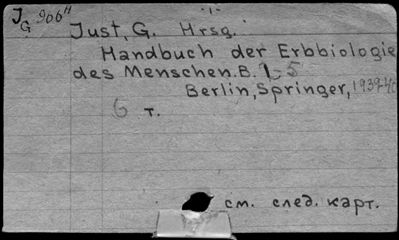 J 906H
G
Just, G. Hrsg.
Handbuch der Erbbiologie
des Menschen. B. 1-5
Berlin, Springer, 1939-40
6 т.
см. след. карт.